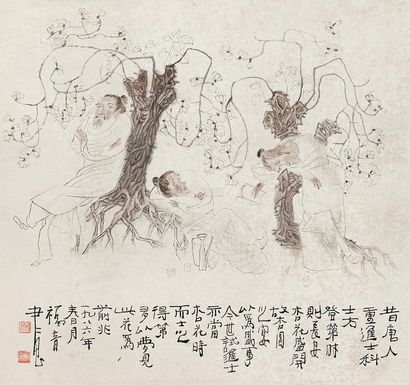 昔唐人
重進士科
士方
登第時
則長安
杏花盛開
故杏園
之宴
以為盛事
今世試進士
亦當
杏花時
而士之
得第
多以夢見
此花為
前兆
一九八六年
春月